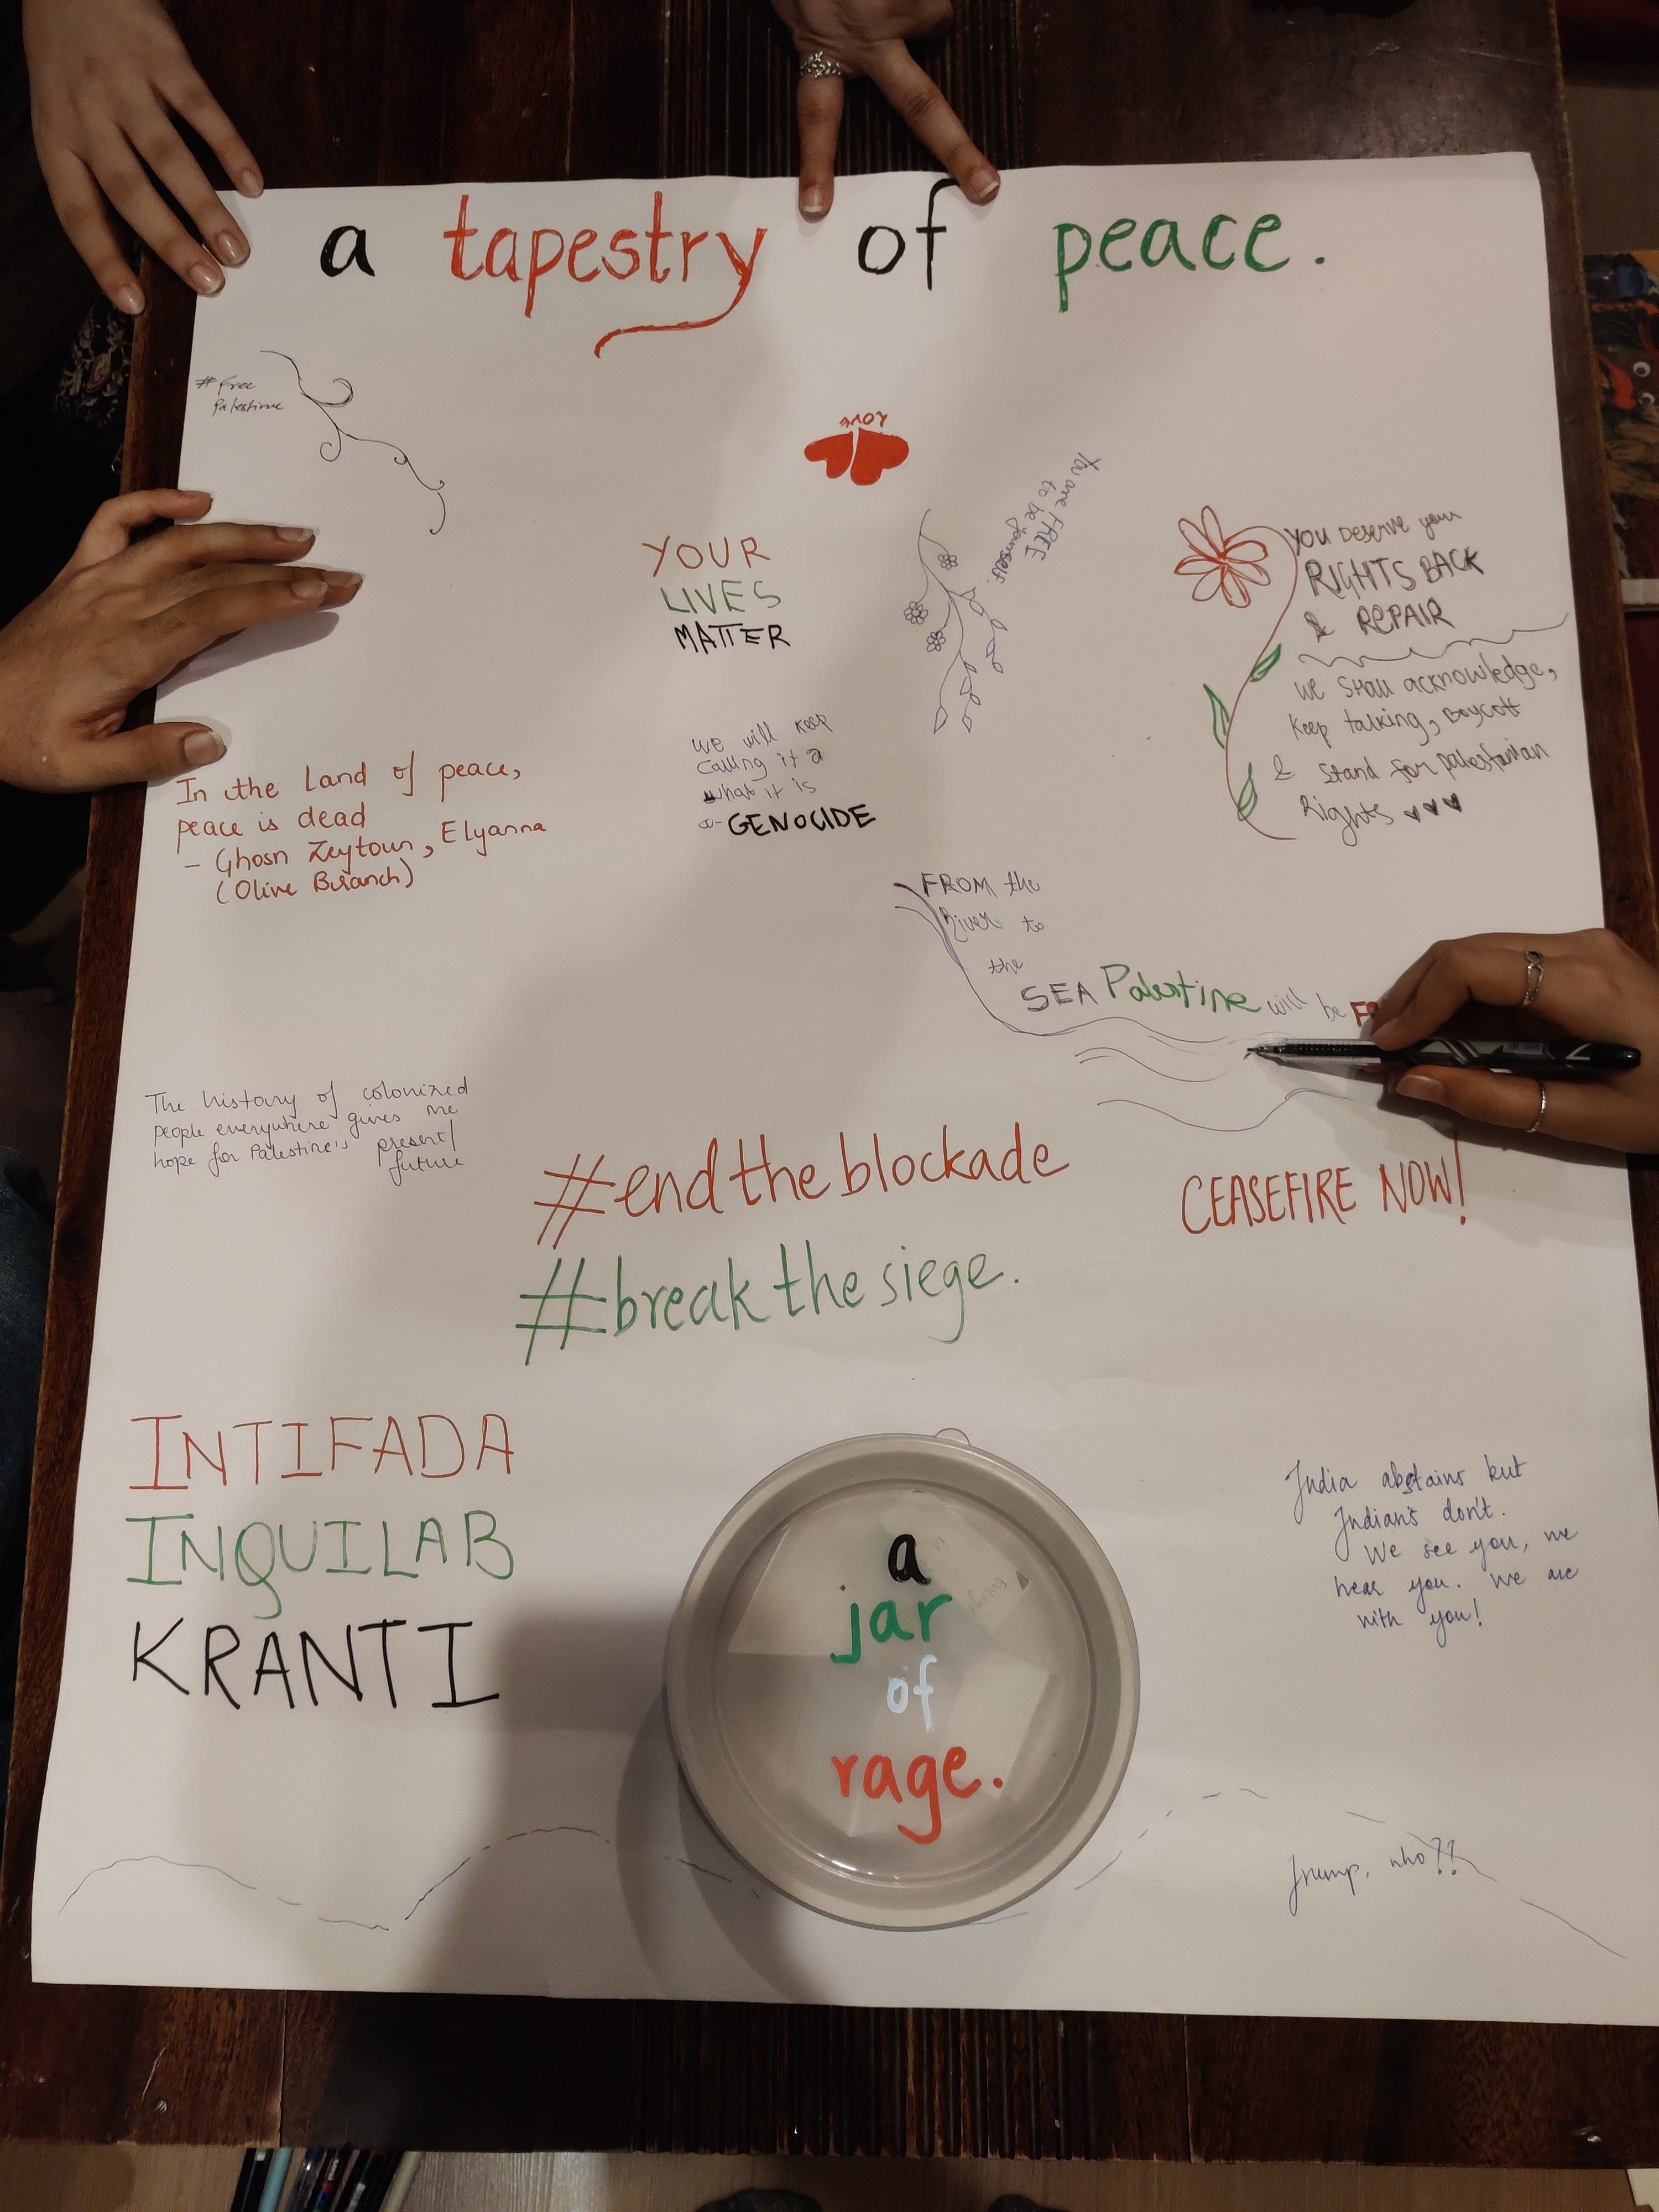 a tapestry of peace.
#Free
Palestine
love
You are FREE
to be yourself.
YOUR
LIVES
MATTER
YOU DESERVE your
RIGHTS BACK
& REPAIR
WE SHALL acknowledge,
keep talking, Boycott
& Stand for palestinian
Rights
WE will keep
calling it a
what it is
a- GENOCIDE
In the Land of peace,
peace is dead
- Ghosn Zeytoun, Elyanna
(Olive Branch)
FROM the
River to
the
SEA Palestine will be
The history of colonized
people everywhere gives me
hope for Palestine's present/
future
#end the blockade
#break the siege.
CEASEFIRE NOW!
INTIFADA
INQUILAB
KRANTI
a
jar
of
rage.
India abstains but
Indian's don't.
We see you, we
hear you. We are
with you!
Trump, who??